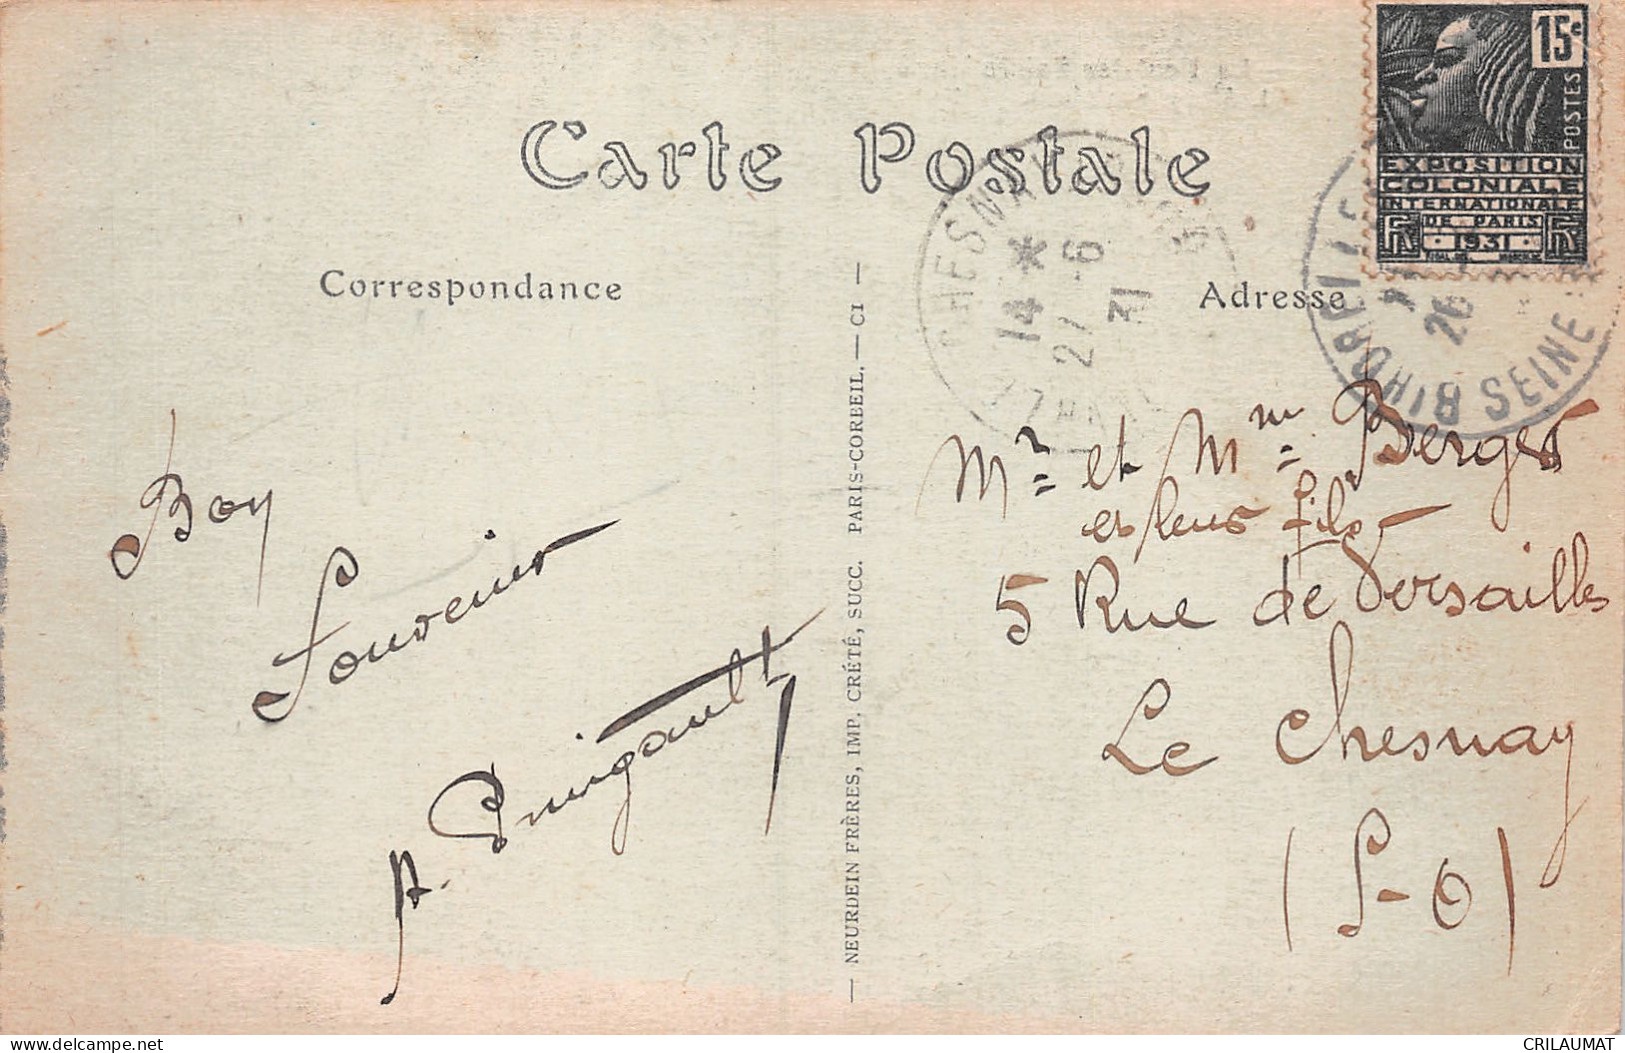 Carte Postale
Correspondance
Adresse
15c
POSTES
EXPOSITION
COLONIALE
INTERNATIONALE
DE PARIS
1931
RF RF
CHESNAY
14 *
27 -6
31
SEINE
26
Mr et Mm Berger
et leurs fils
5 Rue de Versailles
Le Chesnay
(S-O)
Bon
Souvenir
A.
— NEURDEIN FRÈRES, IMP. CRÉTÉ, SUCC. PARIS-CORBEIL. — CI —
CRILAUMAT